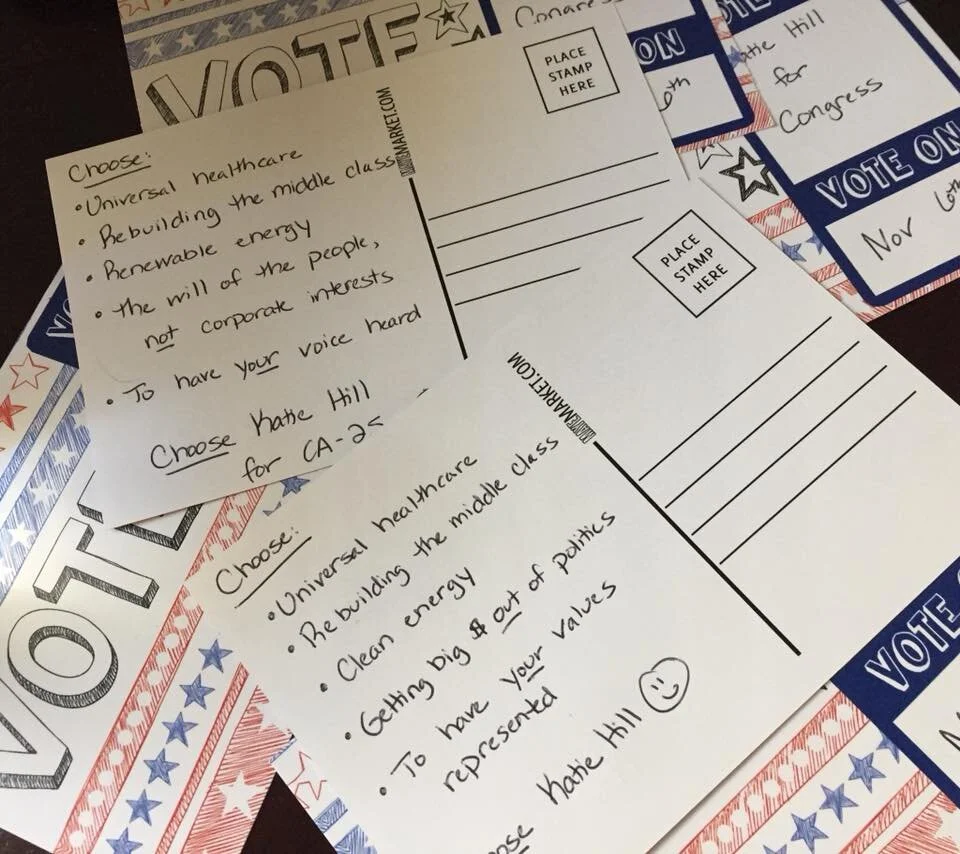 VOTE
Congress
PLACE
STAMP
HERE
ON
6th
Katie Hill
for
Congress
VOTE ON
Nov 6th
MARKET.COM
Choose:
• Universal healthcare
• Rebuilding the middle class
• Renewable energy
• the will of the people,
not corporate interests
• To have your voice heard
Choose Katie Hill
for CA-25
PLACE
STAMP
HERE
MARKET.COM
Choose:
• Universal healthcare
• Rebuilding the middle class
• Clean energy
• Getting big $ out of politics
• To have your values
represented
Katie Hill
VOTE
VOTE